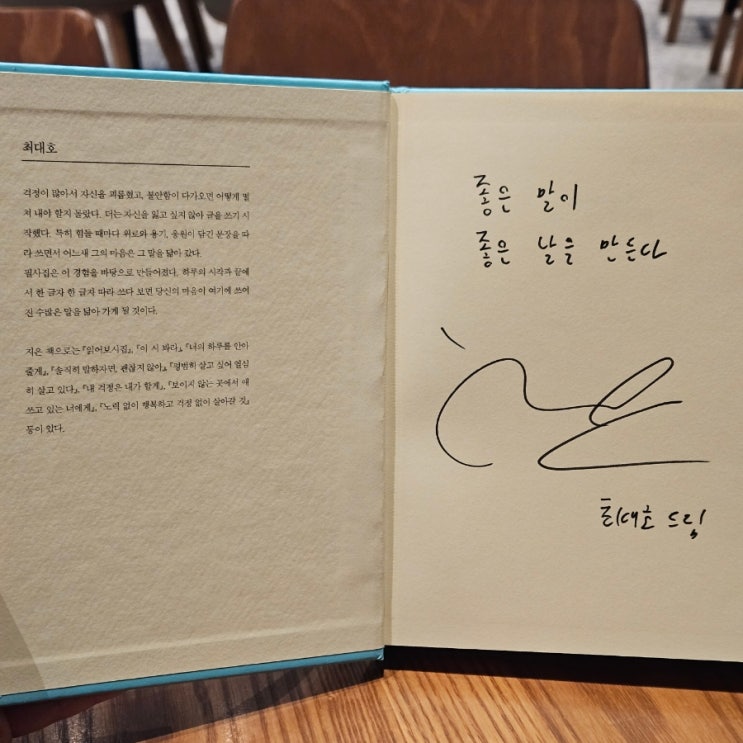 최대호
걱정이 많아서 자신을 괴롭혔고, 불안함이 다가오면 어떻게 떨
쳐 내야 할지 몰랐다. 더는 자신을 잃고 싶지 않아 글을 쓰기 시
작했다. 특히 힘들 때마다 위로와 용기, 응원이 담긴 문장을 따
라 쓰면서 어느새 그의 마음은 그 말을 닮아 갔다.
필사집은 이 경험을 바탕으로 만들어졌다. 하루의 시작과 끝에
서 한 글자 한 글자 따라 쓰다 보면 당신의 마음이 여기에 쓰여
진 수많은 말을 닮아 가게 될 것이다.
지은 책으로는 『읽어보시집』, 『이 시 봐라』, 『너의 하루를 안아
줄게』, 『솔직히 말하자면, 괜찮지 않아』, 『평범히 살고 싶어 열심
히 살고 있다』, 『내 걱정은 내가 할게』, 『보이지 않는 곳에서 애
쓰고 있는 너에게』, 『노력 없이 행복하고 걱정 없이 살아갈 것』
등이 있다.
좋은 말이
좋은 날을 만든다
최대호 드림